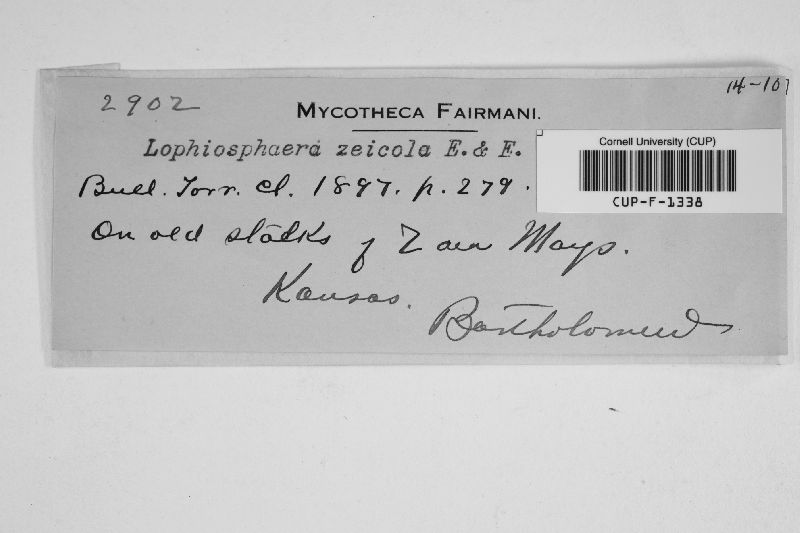 2902
14-107
MYCOTHECA FAIRMANI.
Lophiosphaera zeicola E. & E.
Bull. Torr. Cl. 1897. p. 279.
On old stalks of Zea Mays.
Kansas.
Bartholomew
Cornell University (CUP)
CUP-F-1338